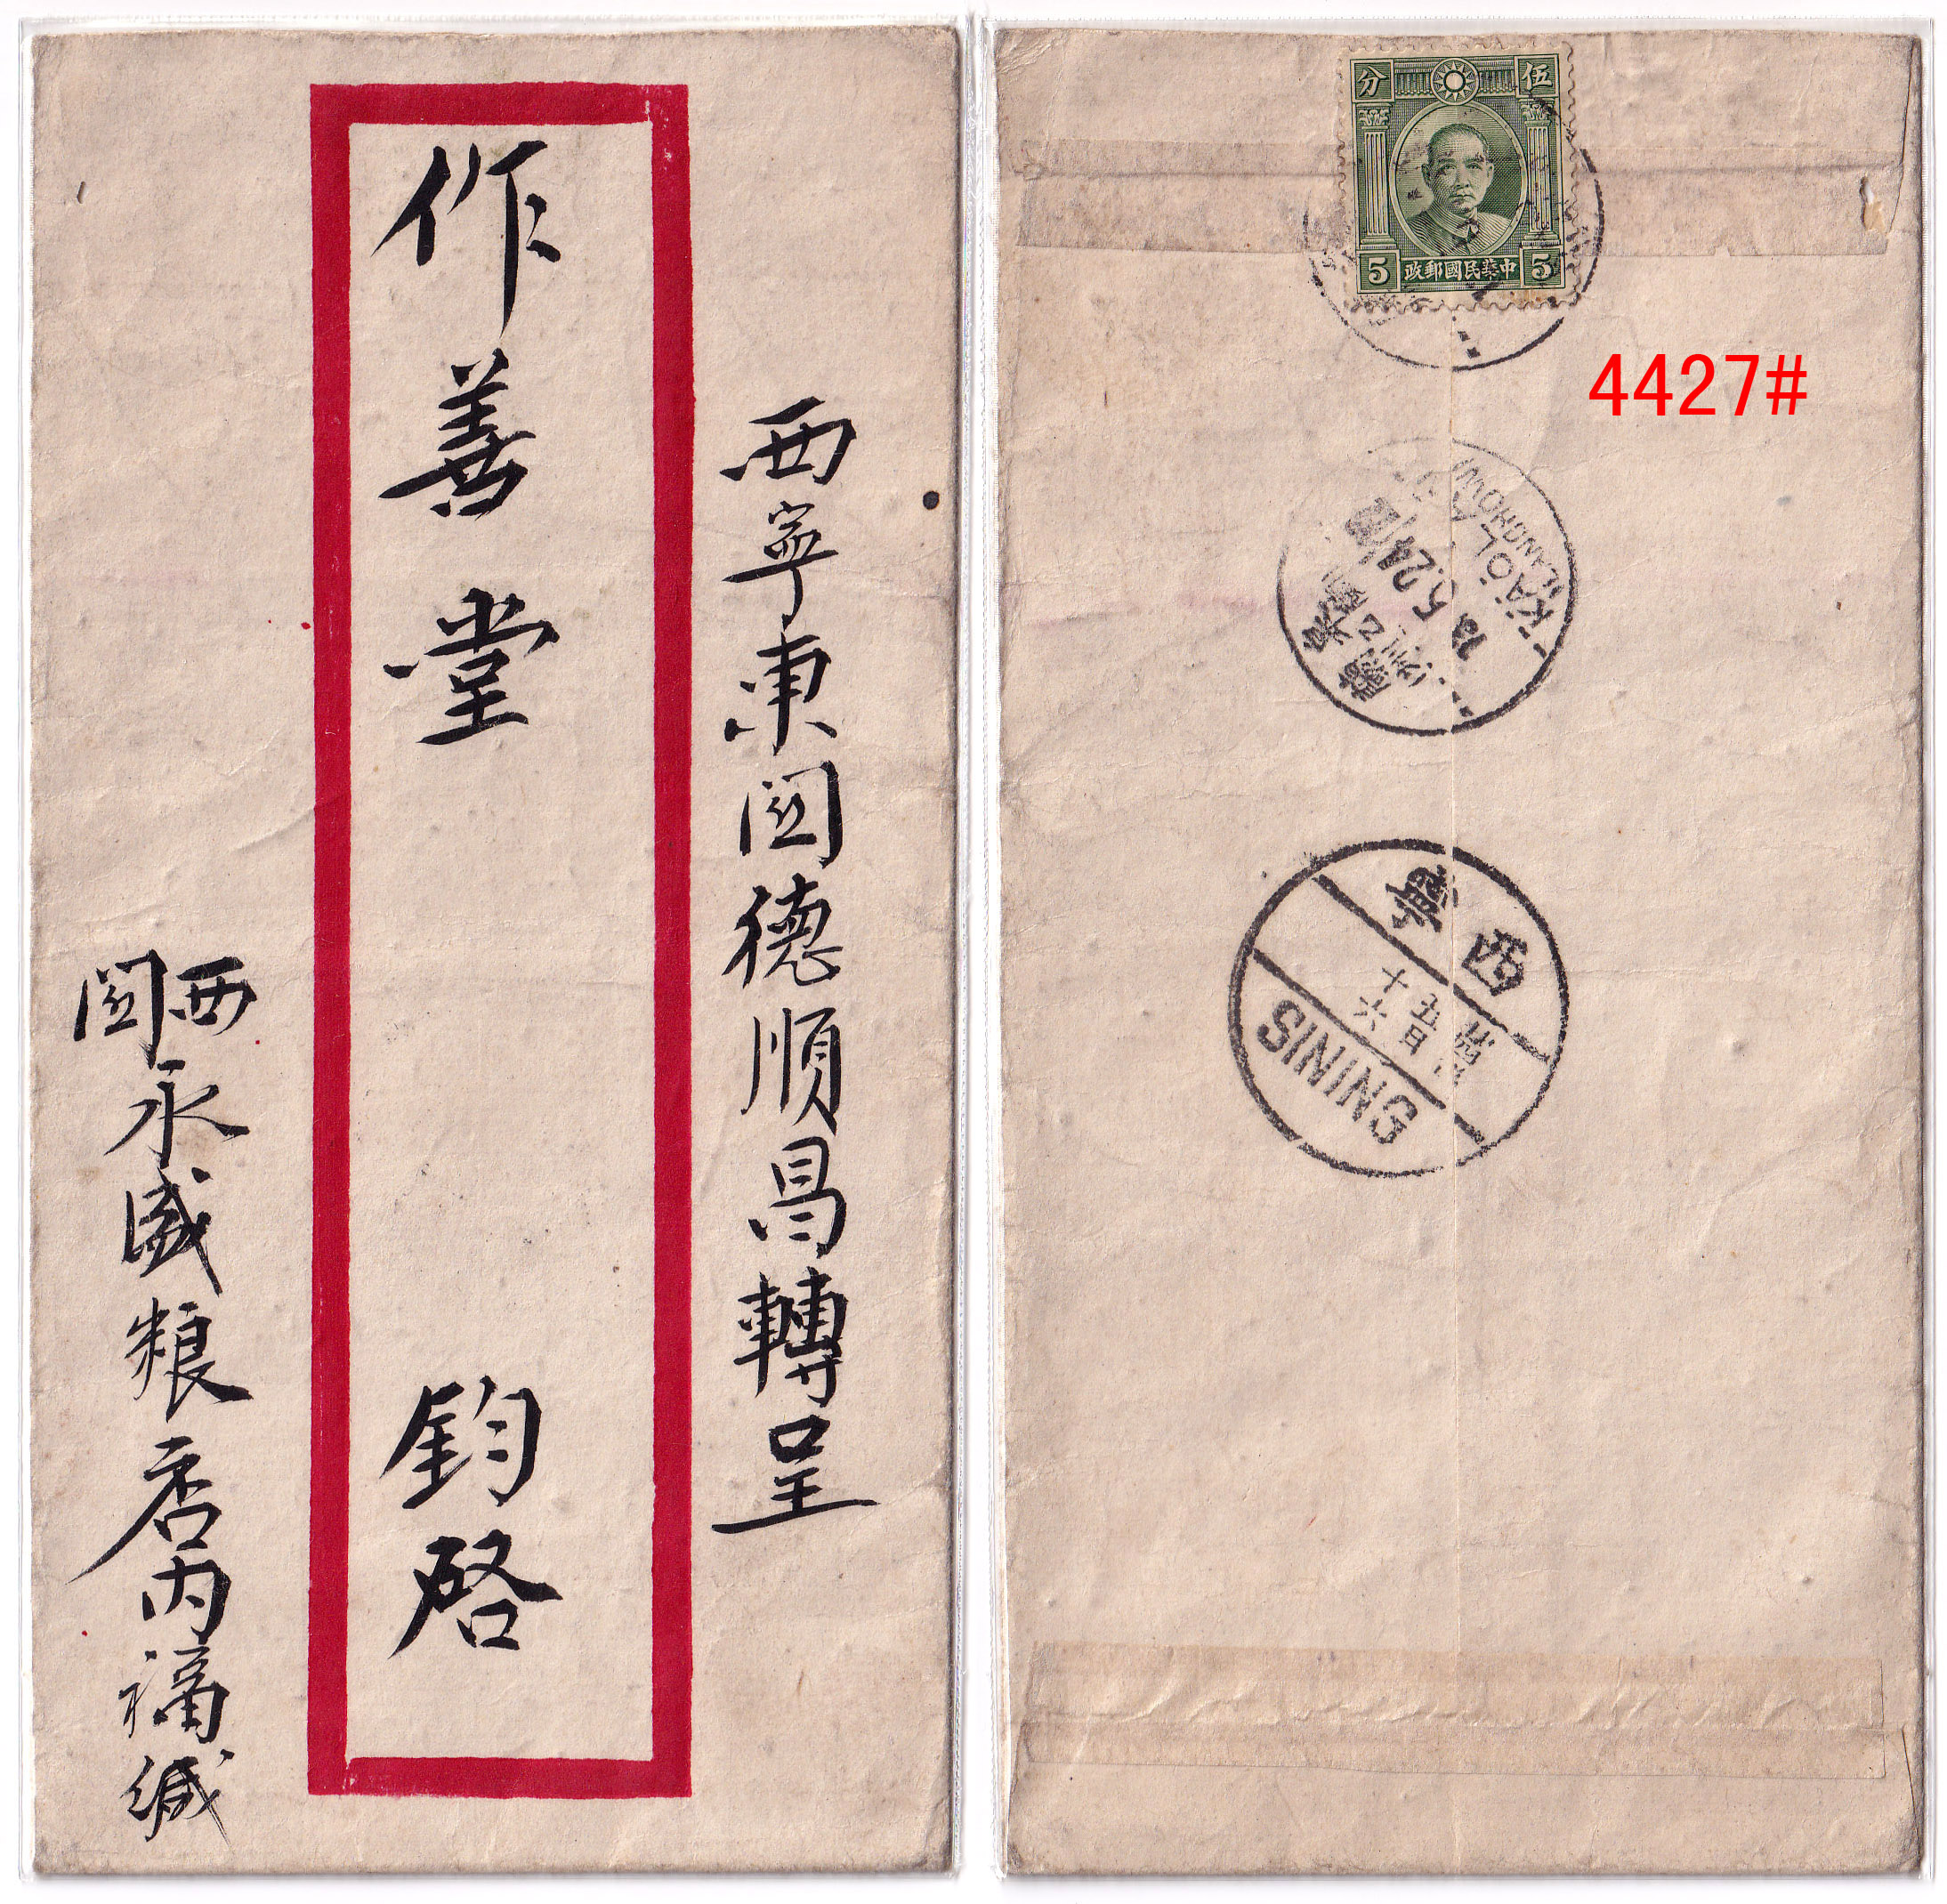 西寧東関德順昌轉呈
作善堂 鈞啓
西関永盛粮店内福緘
分 伍
5 中華民國郵政 5
4427#
KAOLAN
(LANCHOW)
蘭州
5.24
西寧
五日
十六
SINING